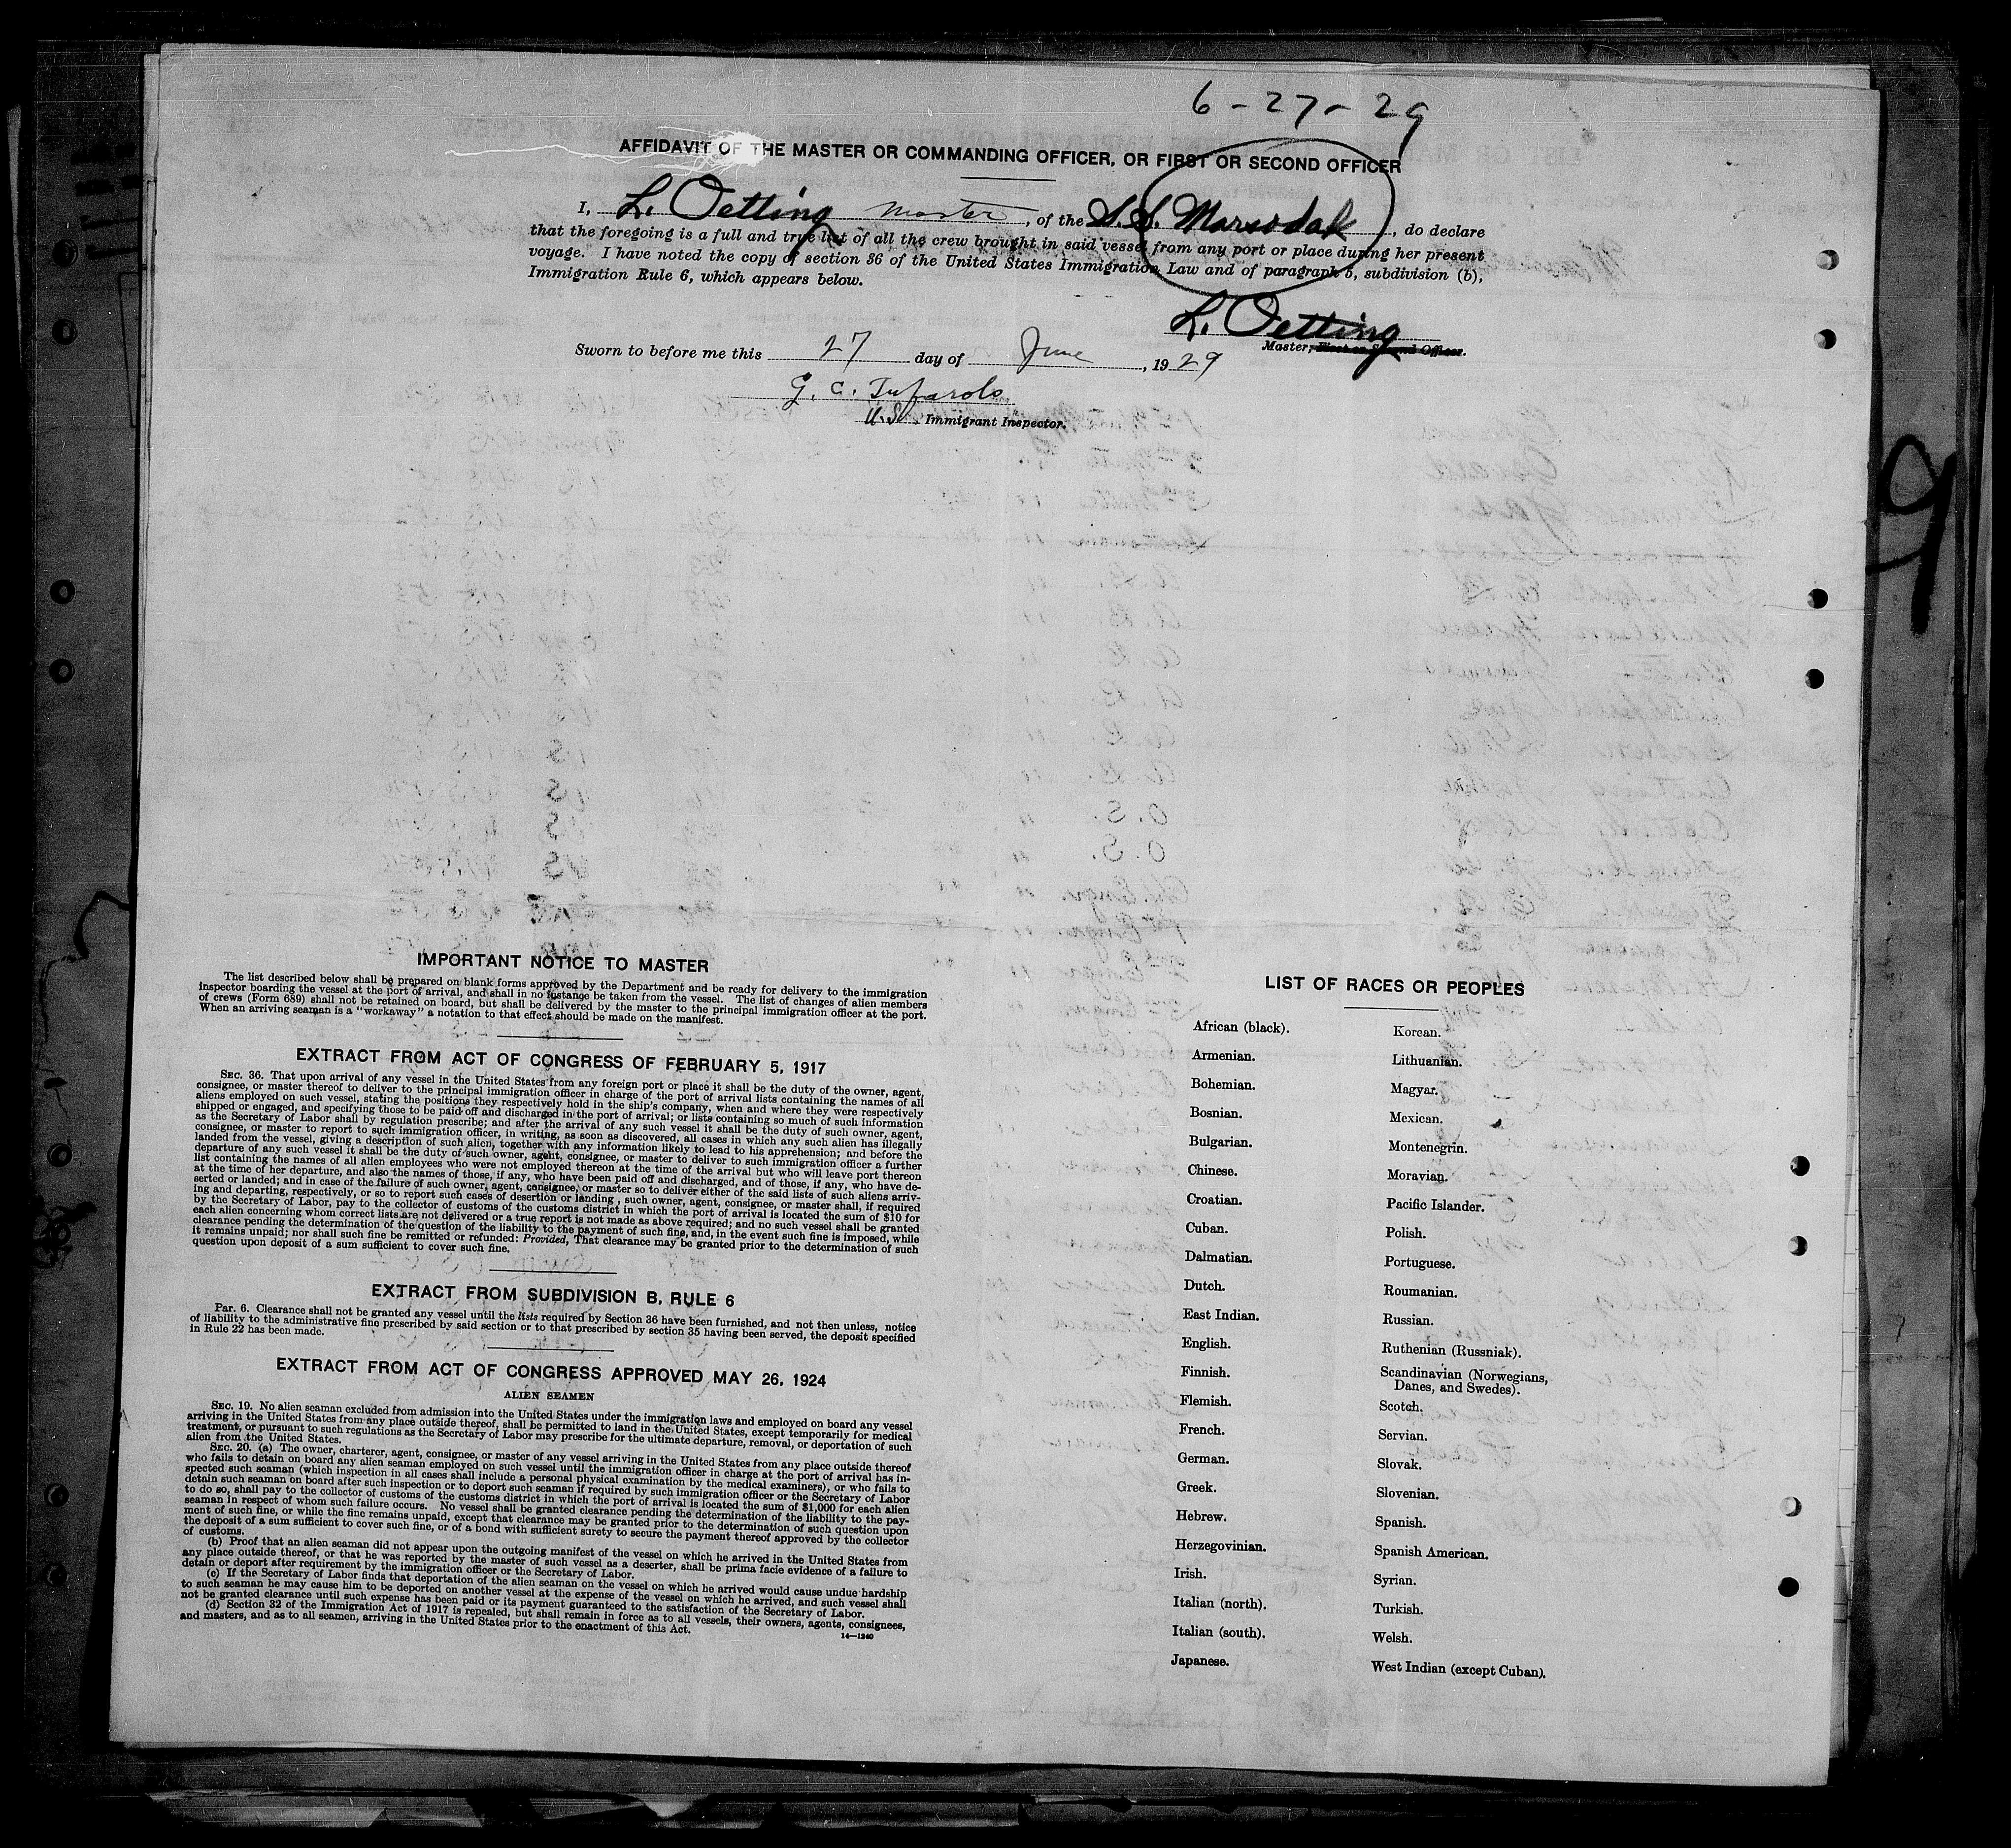 6-27-29
AFFIDAVIT OF THE MASTER OR COMMANDING OFFICER, OR FIRST OR SECOND OFFICER
I, L. Oetting master, of the S.S. Marsodak, do declare
that the foregoing is a full and true list of all the crew brought in said vessel from any port or place during her present
voyage. I have noted the copy of section 36 of the United States Immigration Law and of paragraph 5, subdivision (b),
Immigration Rule 6, which appears below.
L. Oetting
Master, First or Second Officer.
Sworn to before me this 27 day of June, 1929
G. C. Tufarolo
U.S. Immigrant Inspector.
9
IMPORTANT NOTICE TO MASTER
The list described below shall be prepared on blank forms approved by the Department and be ready for delivery to the immigration
inspector boarding the vessel at the port of arrival, and shall in no instance be taken from the vessel. The list of changes of alien members
of crews (Form 689) shall not be retained on board, but shall be delivered by the master to the principal immigration officer at the port.
When an arriving seaman is a "workaway" a notation to that effect should be made on the manifest.
EXTRACT FROM ACT OF CONGRESS OF FEBRUARY 5, 1917
SEC. 36. That upon arrival of any vessel in the United States from any foreign port or place it shall be the duty of the owner, agent,
consignee, or master thereof to deliver to the principal immigration officer in charge of the port of arrival lists containing the names of all
aliens employed on such vessel, stating the positions they respectively hold in the ship's company, when and where they were respectively
shipped or engaged, and specifying those to be paid off and discharged in the port of arrival; or lists containing so much of such information
as the Secretary of Labor shall by regulation prescribe; and after the arrival of any such vessel it shall be the duty of such owner, agent,
consignee, or master to report to such immigration officer, in writing, as soon as discovered, all cases in which any such alien has illegally
landed from the vessel, giving a description of such alien, together with any information likely to lead to his apprehension; and before the
departure of any such vessel it shall be the duty of such owner, agent, consignee, or master to deliver to such immigration officer a further
list containing the names of all alien employees who were not employed thereon at the time of the arrival but who will leave port thereon
at the time of her departure, and also the names of those, if any, who have been paid off and discharged, and of those, if any, who have de-
serted or landed; and in case of the failure of such owner, agent, consignee, or master so to deliver either of the said lists of such aliens arriv-
ing and departing, respectively, or so to report such cases of desertion or landing, such owner, agent, consignee, or master shall, if required
by the Secretary of Labor, pay to the collector of customs of the customs district in which the port of arrival is located the sum of $10 for
each alien concerning whom correct lists are not delivered or a true report is not made as above required; and no such vessel shall be granted
clearance pending the determination of the question of the liability to the payment of such fine, and, in the event such fine is imposed, while
it remains unpaid; nor shall such fine be remitted or refunded: Provided, That clearance may be granted prior to the determination of such
question upon deposit of a sum sufficient to cover such fine.
EXTRACT FROM SUBDIVISION B, RULE 6
Par. 6. Clearance shall not be granted any vessel until the lists required by Section 36 have been furnished, and not then unless, notice
of liability to the administrative fine prescribed by said section or to that prescribed by section 35 having been served, the deposit specified
in Rule 22 has been made.
EXTRACT FROM ACT OF CONGRESS APPROVED MAY 26, 1924
ALIEN SEAMEN
SEC. 19. No alien seaman excluded from admission into the United States under the immigration laws and employed on board any vessel
arriving in the United States from any place outside thereof, shall be permitted to land in the United States, except temporarily for medical
treatment, or pursuant to such regulations as the Secretary of Labor may prescribe for the ultimate departure, removal, or deportation of such
alien from the United States.
SEC. 20. (a) The owner, charterer, agent, consignee, or master of any vessel arriving in the United States from any place outside thereof
who fails to detain on board any alien seaman employed on such vessel until the immigration officer in charge at the port of arrival has in-
spected such seaman (which inspection in all cases shall include a personal physical examination by the medical examiners), or who fails to
detain such seaman on board after such inspection or to deport such seaman if required by such immigration officer or the Secretary of Labor
to do so, shall pay to the collector of customs of the customs district in which the port of arrival is located the sum of $1,000 for each alien
seaman in respect of whom such failure occurs. No vessel shall be granted clearance pending the determination of the liability to the pay-
ment of such fine, or while the fine remains unpaid, except that clearance may be granted prior to the determination of such question upon
the deposit of a sum sufficient to cover such fine, or of a bond with sufficient surety to secure the payment thereof approved by the collector
of customs.
(b) Proof that an alien seaman did not appear upon the outgoing manifest of the vessel on which he arrived in the United States from
any place outside thereof, or that he was reported by the master of such vessel as a deserter, shall be prima facie evidence of a failure to
detain or deport after requirement by the immigration officer or the Secretary of Labor.
(c) If the Secretary of Labor finds that deportation of the alien seaman on the vessel on which he arrived would cause undue hardship
to such seaman he may cause him to be deported on another vessel at the expense of the vessel on which he arrived, and such vessel shall
not be granted clearance until such expense has been paid or its payment guaranteed to the satisfaction of the Secretary of Labor.
(d) Section 32 of the Immigration Act of 1917 is repealed, but shall remain in force as to all vessels, their owners, agents, consignees,
and masters, and as to all seamen, arriving in the United States prior to the enactment of this Act.
14—1240
LIST OF RACES OR PEOPLES
African (black).
Armenian.
Bohemian.
Bosnian.
Bulgarian.
Chinese.
Croatian.
Cuban.
Dalmatian.
Dutch.
East Indian.
English.
Finnish.
Flemish.
French.
German.
Greek.
Hebrew.
Herzegovinian.
Irish.
Italian (north).
Italian (south).
Japanese.
Korean.
Lithuanian.
Magyar.
Mexican.
Montenegrin.
Moravian.
Pacific Islander.
Polish.
Portuguese.
Roumanian.
Russian.
Ruthenian (Russniak).
Scandinavian (Norwegians,
Danes, and Swedes).
Scotch.
Servian.
Slovak.
Slovenian.
Spanish.
Spanish American.
Syrian.
Turkish.
Welsh.
West Indian (except Cuban).